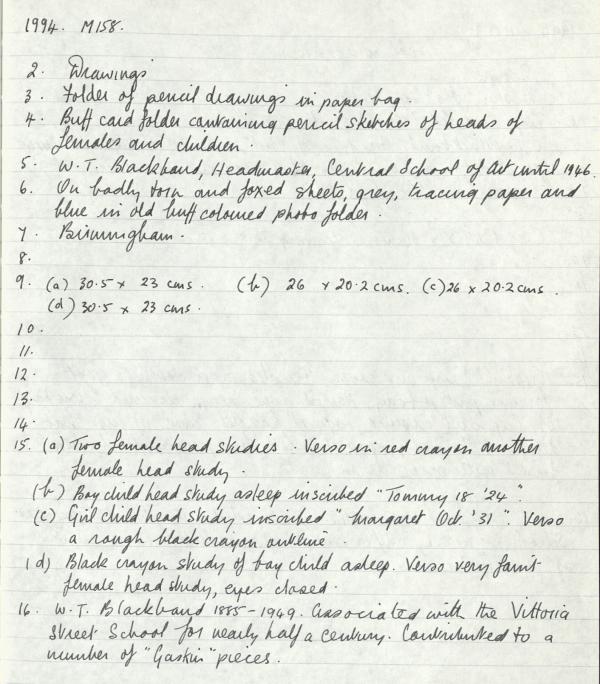 1994. M158.
2. Drawings
3. Folder of pencil drawings in paper bag.
4. Buff card folder containing pencil sketches of heads of
females and children.
5. W.T. Blackband, Headmaster, Central School of Art until 1946.
6. On badly torn and foxed sheets, grey, tracing paper and
blue in old buff coloured photo folder.
7. Birmingham.
8.
9. (a) 30.5 x 23 cms. (b) 26 x 20.2 cms. (c) 26 x 20.2 cms.
(d) 30.5 x 23 cms.
10.
11.
12.
13.
14.
15. (a) Two female head studies. Verso in red crayon another
female head study.
(b) Boy child head study asleep inscribed "Tommy 18 '24".
(c) Girl child head study inscribed "Margaret Oct. '31". Verso
a rough black crayon outline.
(d) Black crayon study of boy child asleep. Verso very faint
female head study, eyes closed.
16. W.T. Blackband 1885-1949. Associated with the Vittoria
Street School for nearly half a century. Contributed to a
number of "Gaskin" pieces.